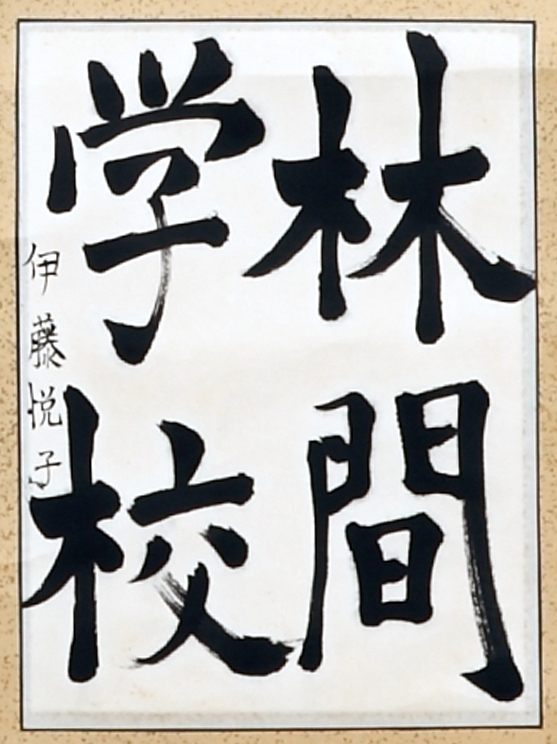 林間
学校
伊藤悦子